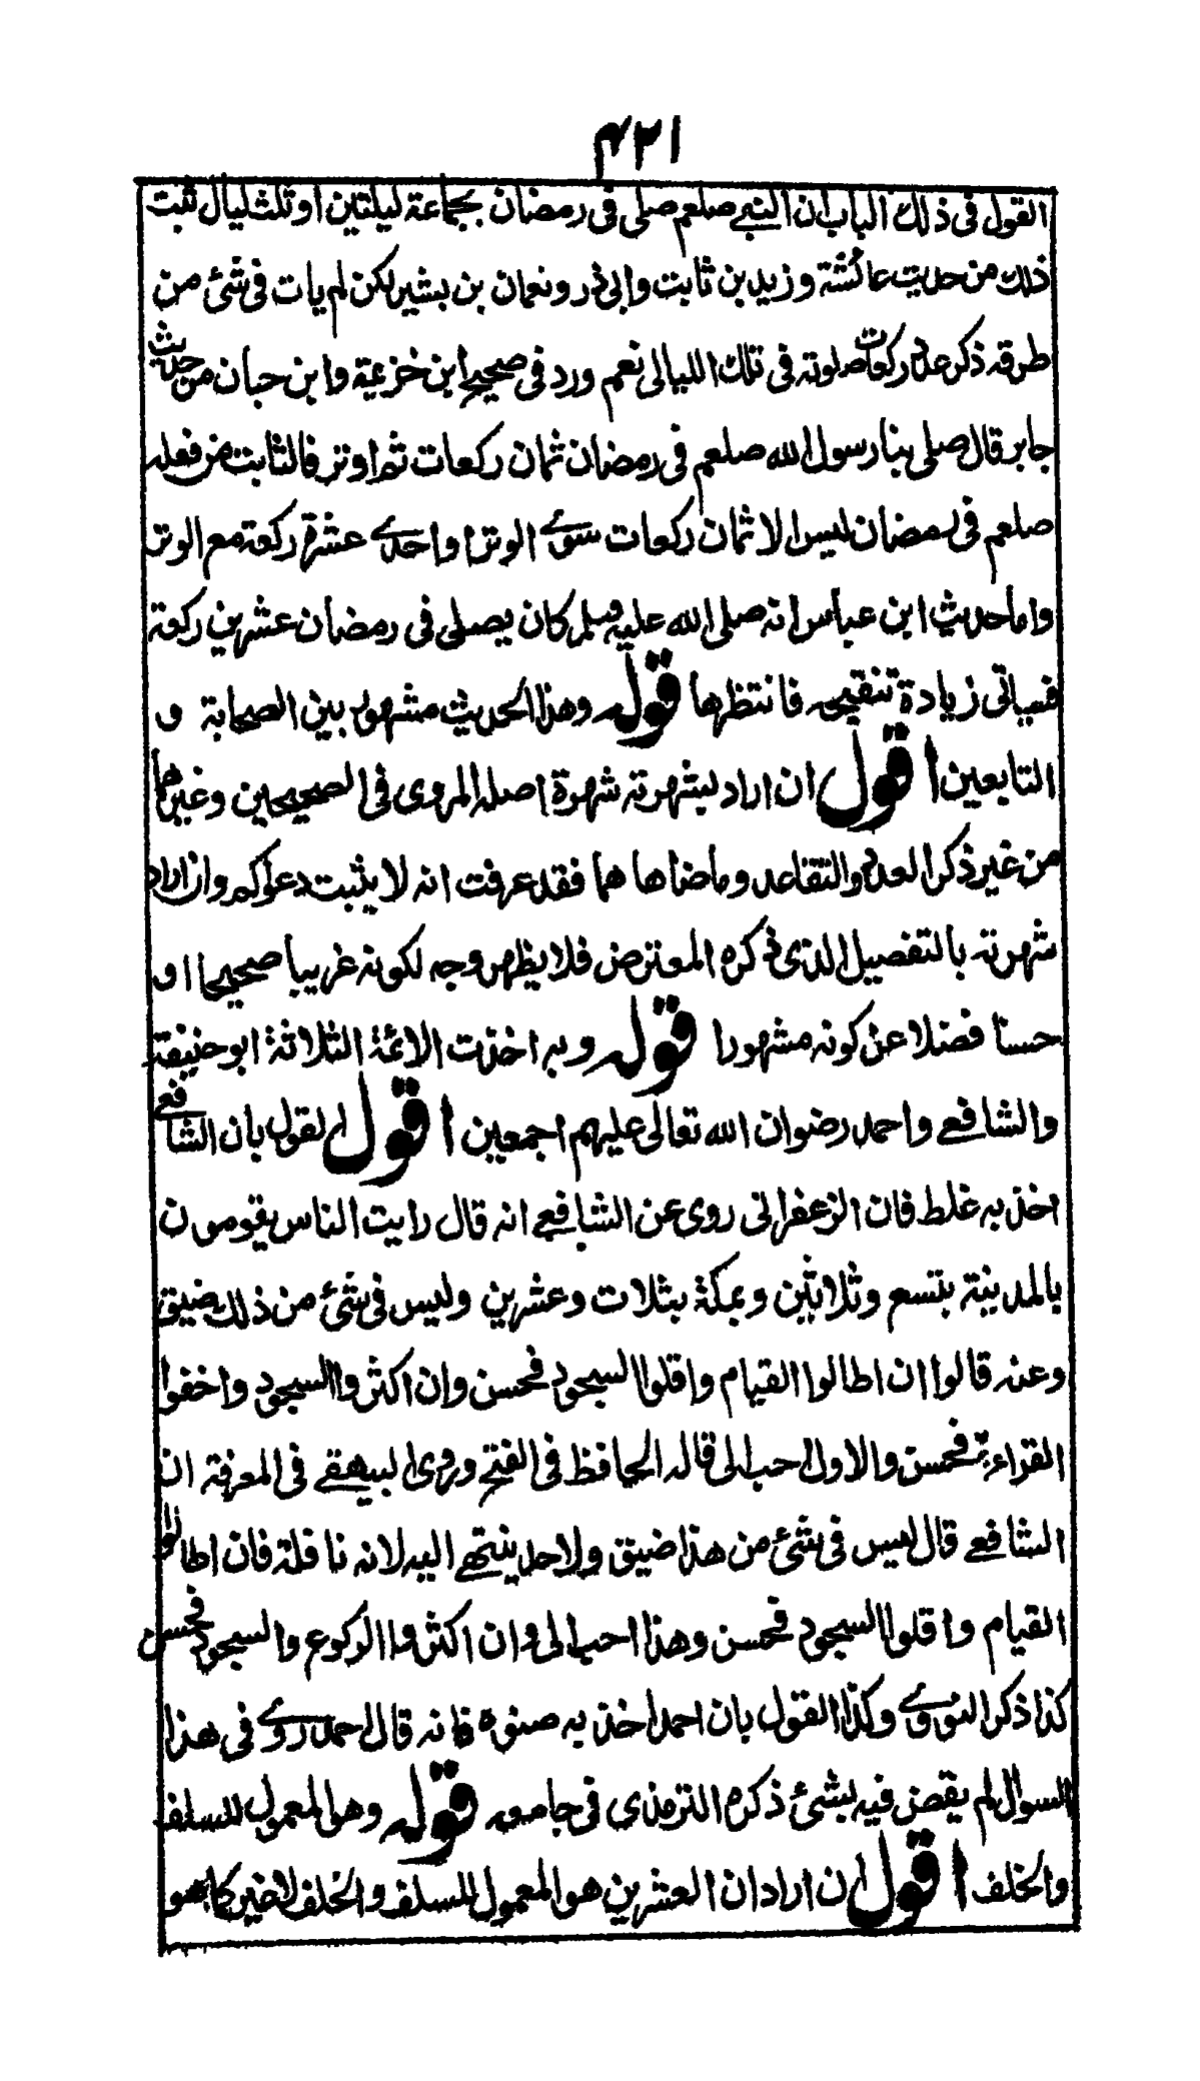 ۴۲۱
القول فی ذلك الباب ان النبی صلعم صلی فی رمضان بجماعة لیلتین او ثلث لیال ثبت
ذلك من حدیث عائشة و زید بن ثابت وابی ذر و نعمان بن بشیر لکن لم یات فی شئ من
طرقه ذکر عدد رکعات صلوته فی تلك اللیالی نعم ورد فی صحیح ابن خزیمة وابن حبان من حدیث
جابر قال صلی بنا رسول الله صلعم فی رمضان ثمان رکعات ثم اوتر فالثابت من فعله
صلعم فی رمضان لیس الا ثمان رکعات سوی الوتر او احدی عشرة رکعة مع الوتر
واما حدیث ابن عباس انه صلی الله علیه وسلم کان یصلی فی رمضان عشرین رکعة
فسیاتی زیادة تنقیحه فانتظرها قوله وهذا الحدیث مشهور بین الصحابة و
التابعین اقول ان اراد بشهرته شهرة اصله المروی فی الصحیحین وغیرهما
من غیر ذکر العدد والتقاعد وما ضاهاهما فقد عرفت انه لا یثبت دعواکم وان اراد
شهرته بالتفصیل الذی ذکره المعترض فلا یظهر وجه لکونه غریبا صحیحا او
حسنا فضلا عن کونه مشهورا قوله وبه اخذت الائمة الثلاثة ابو حنیفة
والشافعی واحمد رضوان الله تعالی علیهم اجمعین اقول القول بان الشافعی
اخذ به غلط فان الزعفرانی روی عن الشافعی انه قال رایت الناس یقومون
بالمدینة بتسع وثلاثین وبمکة بثلاث وعشرین ولیس فی شئ من ذلك ضیق
وعنه قالوا ان اطالوا القیام واقلوا السجود فحسن وان اکثروا السجود واخفوا
القراءة فحسن والاول احب الی قاله الحافظ فی الفتح وروی البیهقی فی المعرفة ان
الشافعی قال لیس فی شئ من هذا ضیق ولا حد ینتهی الیه لانه نافلة فان اطالوا
القیام واقلوا السجود فحسن وهذا احب الی وان اکثروا الرکوع والسجود فحسن
کذا ذکر النووی وکذا القول بان احمد اخذ به صنوه فانه قال احمد روی فی هذا
السوال لم یقض فیه بشئ ذکره الترمذی فی جامعه قوله وهو المعمول للسلف
والخلف اقول ان اراد ان العشرین هو المعمول للسلف والخلف لا غیر کما هو